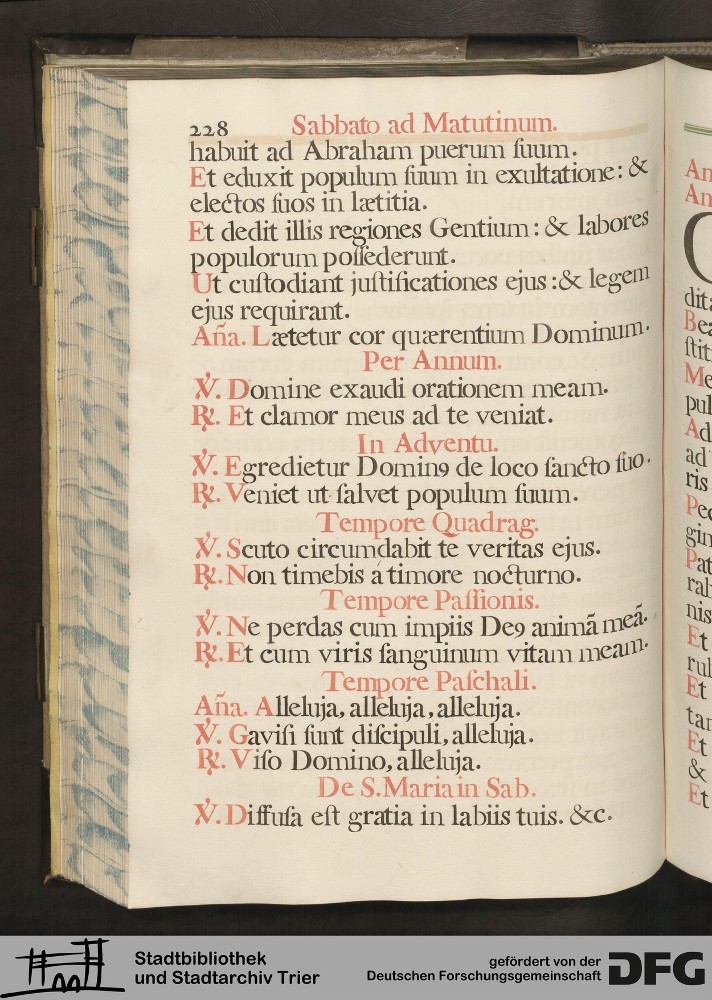 228 Sabbato ad Matutinum.
habuit ad Abraham puerum ſuum.
Et eduxit populum ſuum in exultatione: &
electos ſuos in lætitia.
Et dedit illis regiones Gentium: & labores
populorum poſſederunt.
Ut cuſtodiant juſtificationes ejus: & legem
ejus requirant.
Aña. Lætetur cor quærentium Dominum.
Per Annum.
℣. Domine exaudi orationem meam.
℟. Et clamor meus ad te veniat.
In Adventu.
℣. Egredietur Dominꝰ de loco ſancto ſuo.
℟. Veniet ut ſalvet populum ſuum.
Tempore Quadrag.
℣. Scuto circumdabit te veritas ejus.
℟. Non timebis á timore nocturno.
Tempore Paſſionis.
℣. Ne perdas cum impiis Deꝰ animã meã.
℟. Et cum viris ſanguinum vitam meam.
Tempore Paſchali.
Aña. Alleluja, alleluja, alleluja.
℣. Gaviſi ſunt diſcipuli, alleluja.
℟. Viſo Domino, alleluja.
De S. Maria in Sab.
℣. Diffuſa eſt gratia in labiis tuis. &c.
An
An
dita
Bea
ſtit
Me
pul
Ad
ad
ris
Pec
gin
Pat
rah
nis
Et
rul
Et
tan
Et
&
Et
Stadtbibliothek
und Stadtarchiv Trier
gefördert von der
Deutschen Forschungsgemeinschaft
DFG